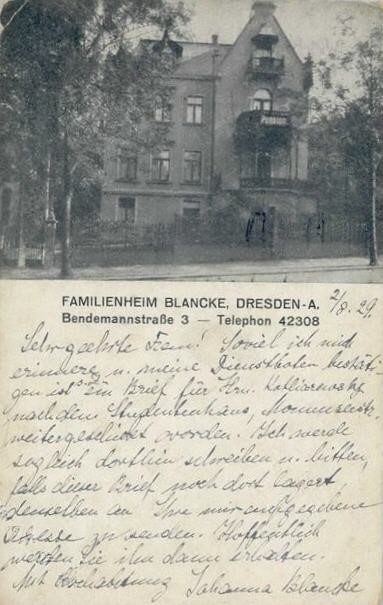 Pension
FAMILIENHEIM BLANCKE, DRESDEN-A.
Bendemannstraße 3 — Telephon 42308
2/8. 29.
Sehr geehrte Frau! Soviel ich mich
erinnere u. meine Dienstboten bestäti-
gen ist ein Brief für Hrn.
nach dem Studentenhaus, Mommsenstr.
weitergeschickt worden. Ich werde
sogleich dorthin schreiben u. bitten,
falls dieser Brief noch dort lagert,
denselben an Ihre mir aufgegebene
Adresse zu senden. Hoffentlich
werden Sie ihn dann erhalten.
Mit Hochachtung Johanna Blancke